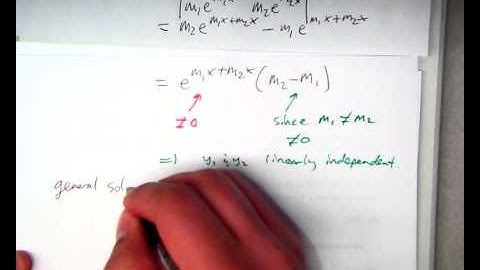 m₁e^m₁x m₂e^m₂x
= m₂e^m₁x+m₂x - m₁e^m₁x+m₂x
= e^m₁x+m₂x (m₂-m₁)
≠0 since m₁≠m₂
≠0
=) y₁ & y₂ linearly independent.
general sol